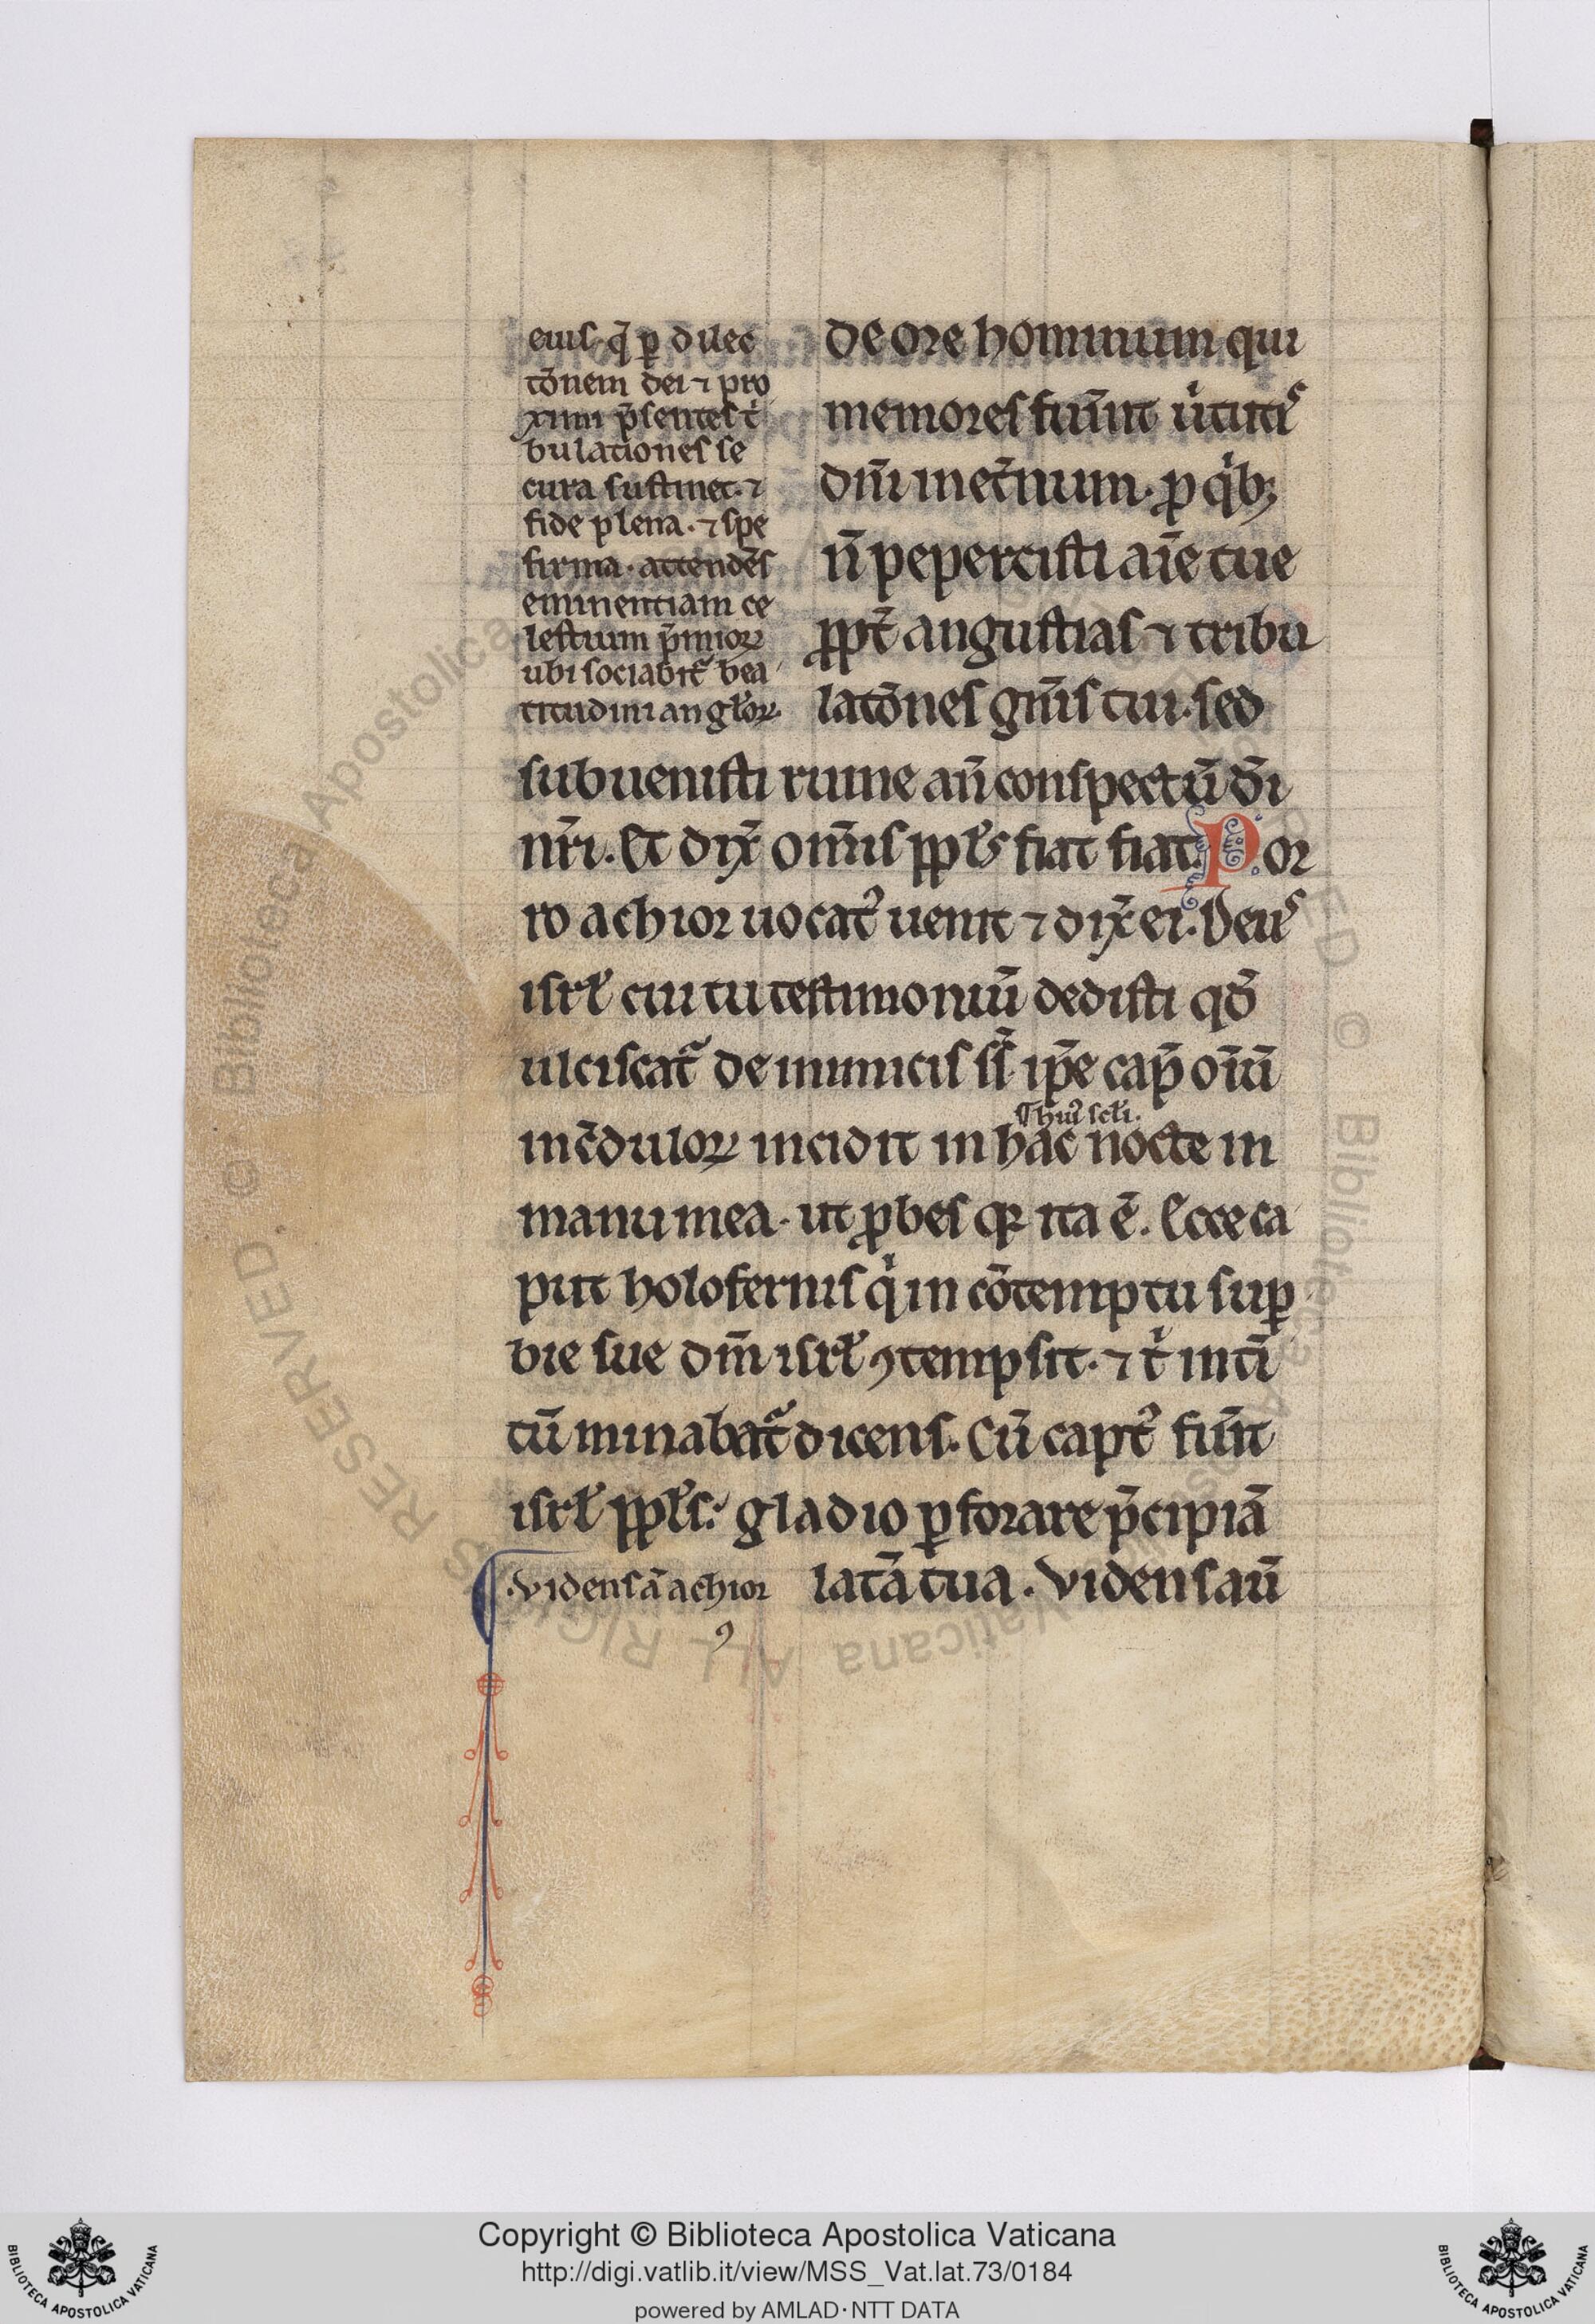 eius. q̄ ꝑ dilec
tōnem dei ⁊ pro
ximi p̄sentes tͥ
bulationes se
cura sustinet. ⁊
fide plena. ⁊ spe
firma. attendēs
eminentiam ce
lestium p̄mioꝝ
ubi sociabit᷑ bea
titudini angl̓oꝝ.
de ore hominum qui
memores fuīnt uͥtutꝭ
dn̄i inet̄num. ꝓ qͥbꝫ
n̄ pepercisti aīe tue
ꝓpt̄ angustias ⁊ tribu
latōnes gn̄is tui. sed
subuenisti ruine an̄ conspectū d̄i
nr̄i. Et dix̄ om̄is ppl̓s fiat fiat. Por
ro achior uocatꝰ uenit ⁊ dix̄ ei. Deus
isrl̓ cui tu testimoniū dedisti qd̄
ulciscat᷑ de inimicis ss̄. ip̄e cap̄ oīū
¶ hui᷒ scl̓i.
inc̄duloꝝ incidit in hac nocte in
manu mea. ut ꝓbes qꝛ ita ē. Ecce ca
put holofernis qͥ in cōtemptu suꝑ
bie sue dm̄ isrl̓ ꝯtempsit. ⁊ tͥ intī
tū minabat᷑ dicens. Cū captꝰ fūīt
isrl̓ ppl̓s. gladio ꝑforare p̄cipiā
lat̄a tua. Vidensaū
. Videns ā achior
ꝯ
© Biblioteca Apostolica Vaticana ALL RIGHTS RESERVED
Copyright © Biblioteca Apostolica Vaticana
http://digi.vatlib.it/view/MSS_Vat.lat.73/0184
powered by AMLAD·NTT DATA
BIBLIOTECA APOSTOLICA VATICANA
BIBLIOTECA APOSTOLICA VATICANA